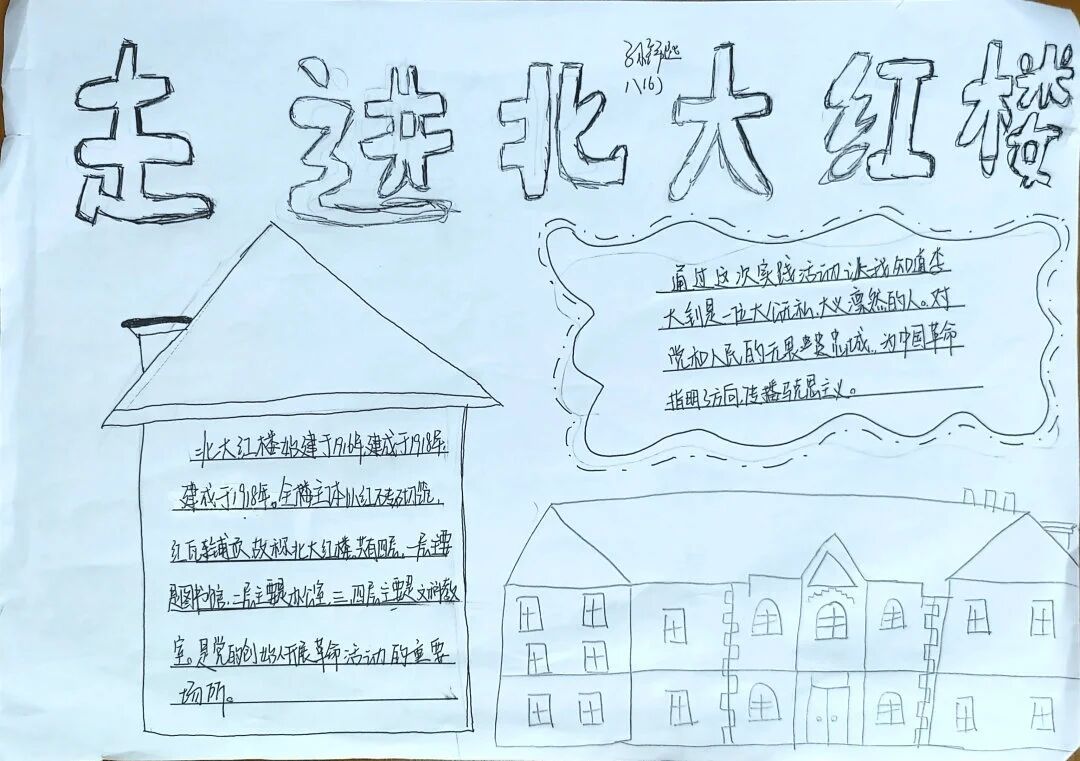 走进北大红楼
八(6)
通过这次实践活动让我知道李
大钊是一位大公无私、大义凛然的人。对
党和人民的无畏忠诚,为中国革命
指明了方向,传播马克思主义。
北大红楼始建于1916年,建成于1918年,
建成于1918年。全楼主体以红砖砌筑,
红瓦铺顶,故称北大红楼,共有四层,一层主要
是图书馆,二层主要是办公室,三、四层主要是文科教
室。是党的创始人开展革命活动的重要
场所。